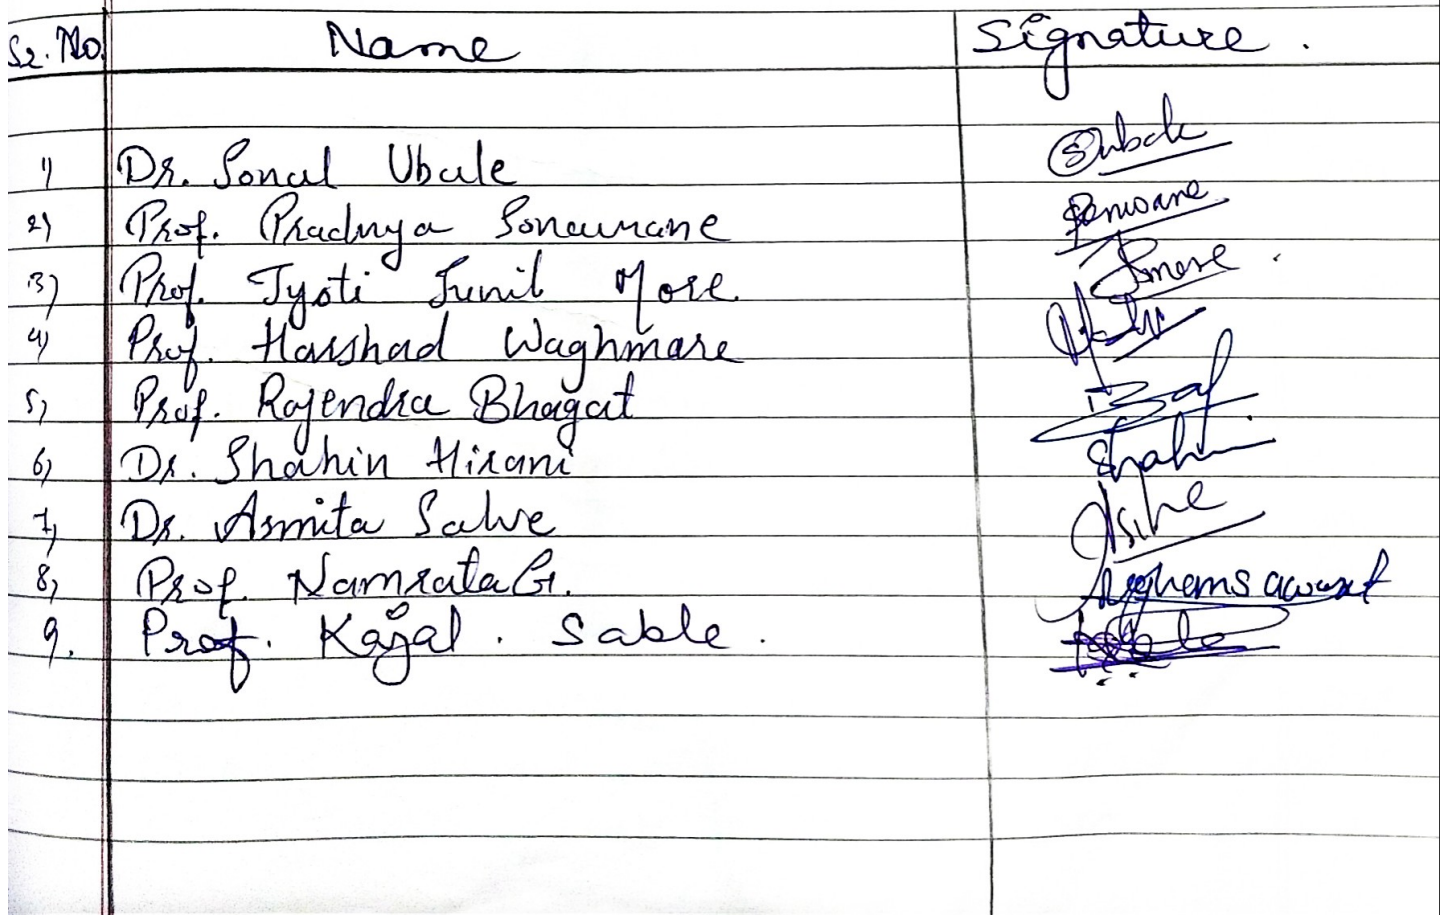 Sr. No. Name Signature.
1) Dr. Sonal Ubale Subale
2) Prof. Pradnya Sonawane
3) Prof. Jyoti Sunil More Jmore
4) Prof. Harshad Waghmare
5) Prof. Rajendra Bhagat
6) Dr. Shahin Hirani Shahin
7) Dr. Asmita Salve
8) Prof. Namrata G.
9. Prof. Kajal . Sable .